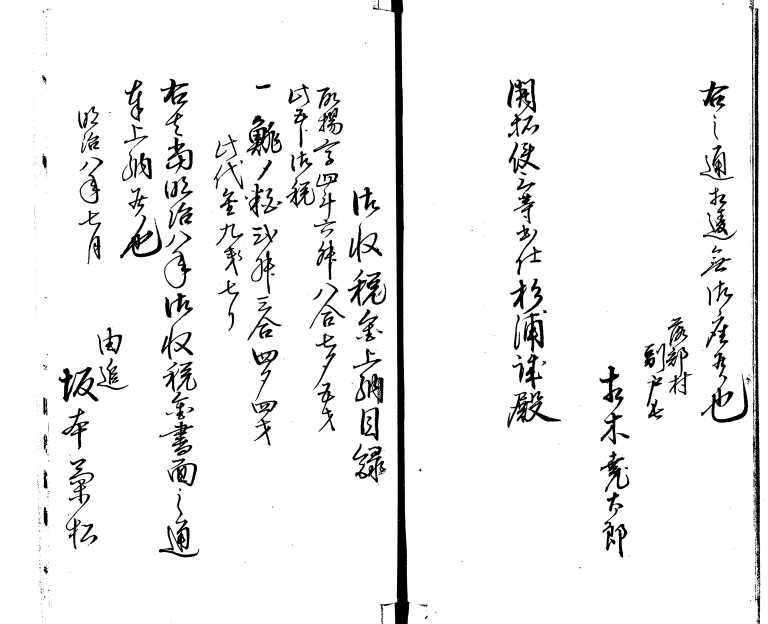 右之通相違無御座候也
落部村
副戸長
相木堯太郎
開拓使三等出仕杉浦誠殿
御収税金上納目録
取揚高四斗六升八合七夕五才
此五分御税
一鯡ノ粕弐升三合四夕四才
此代金九銭七り
右者当明治八年御収税金書面之通
奉上納候也
明治八年七月
由追
坂本菊松